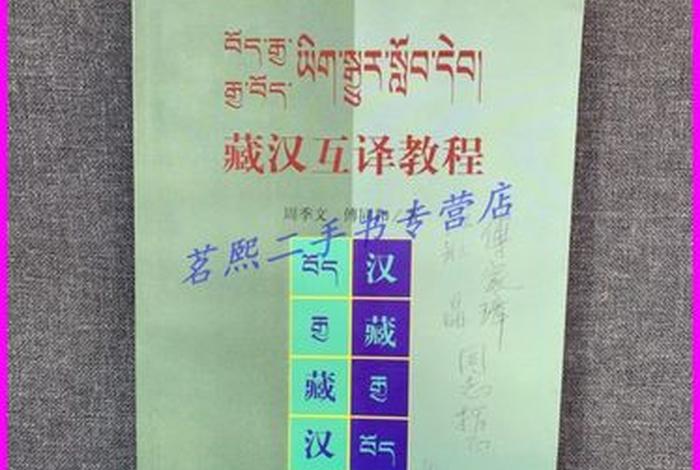 བོད་རྒྱ་
རྒྱ་བོད་ ཡིག་སྒྱུར་སློབ་དེབ།
藏汉互译教程
周季文 傅同和
茗熙二手书专营店
བོད 汉
རྒྱ 藏
藏 རྒྱ
汉 བོད
傅家璋
晶
同志